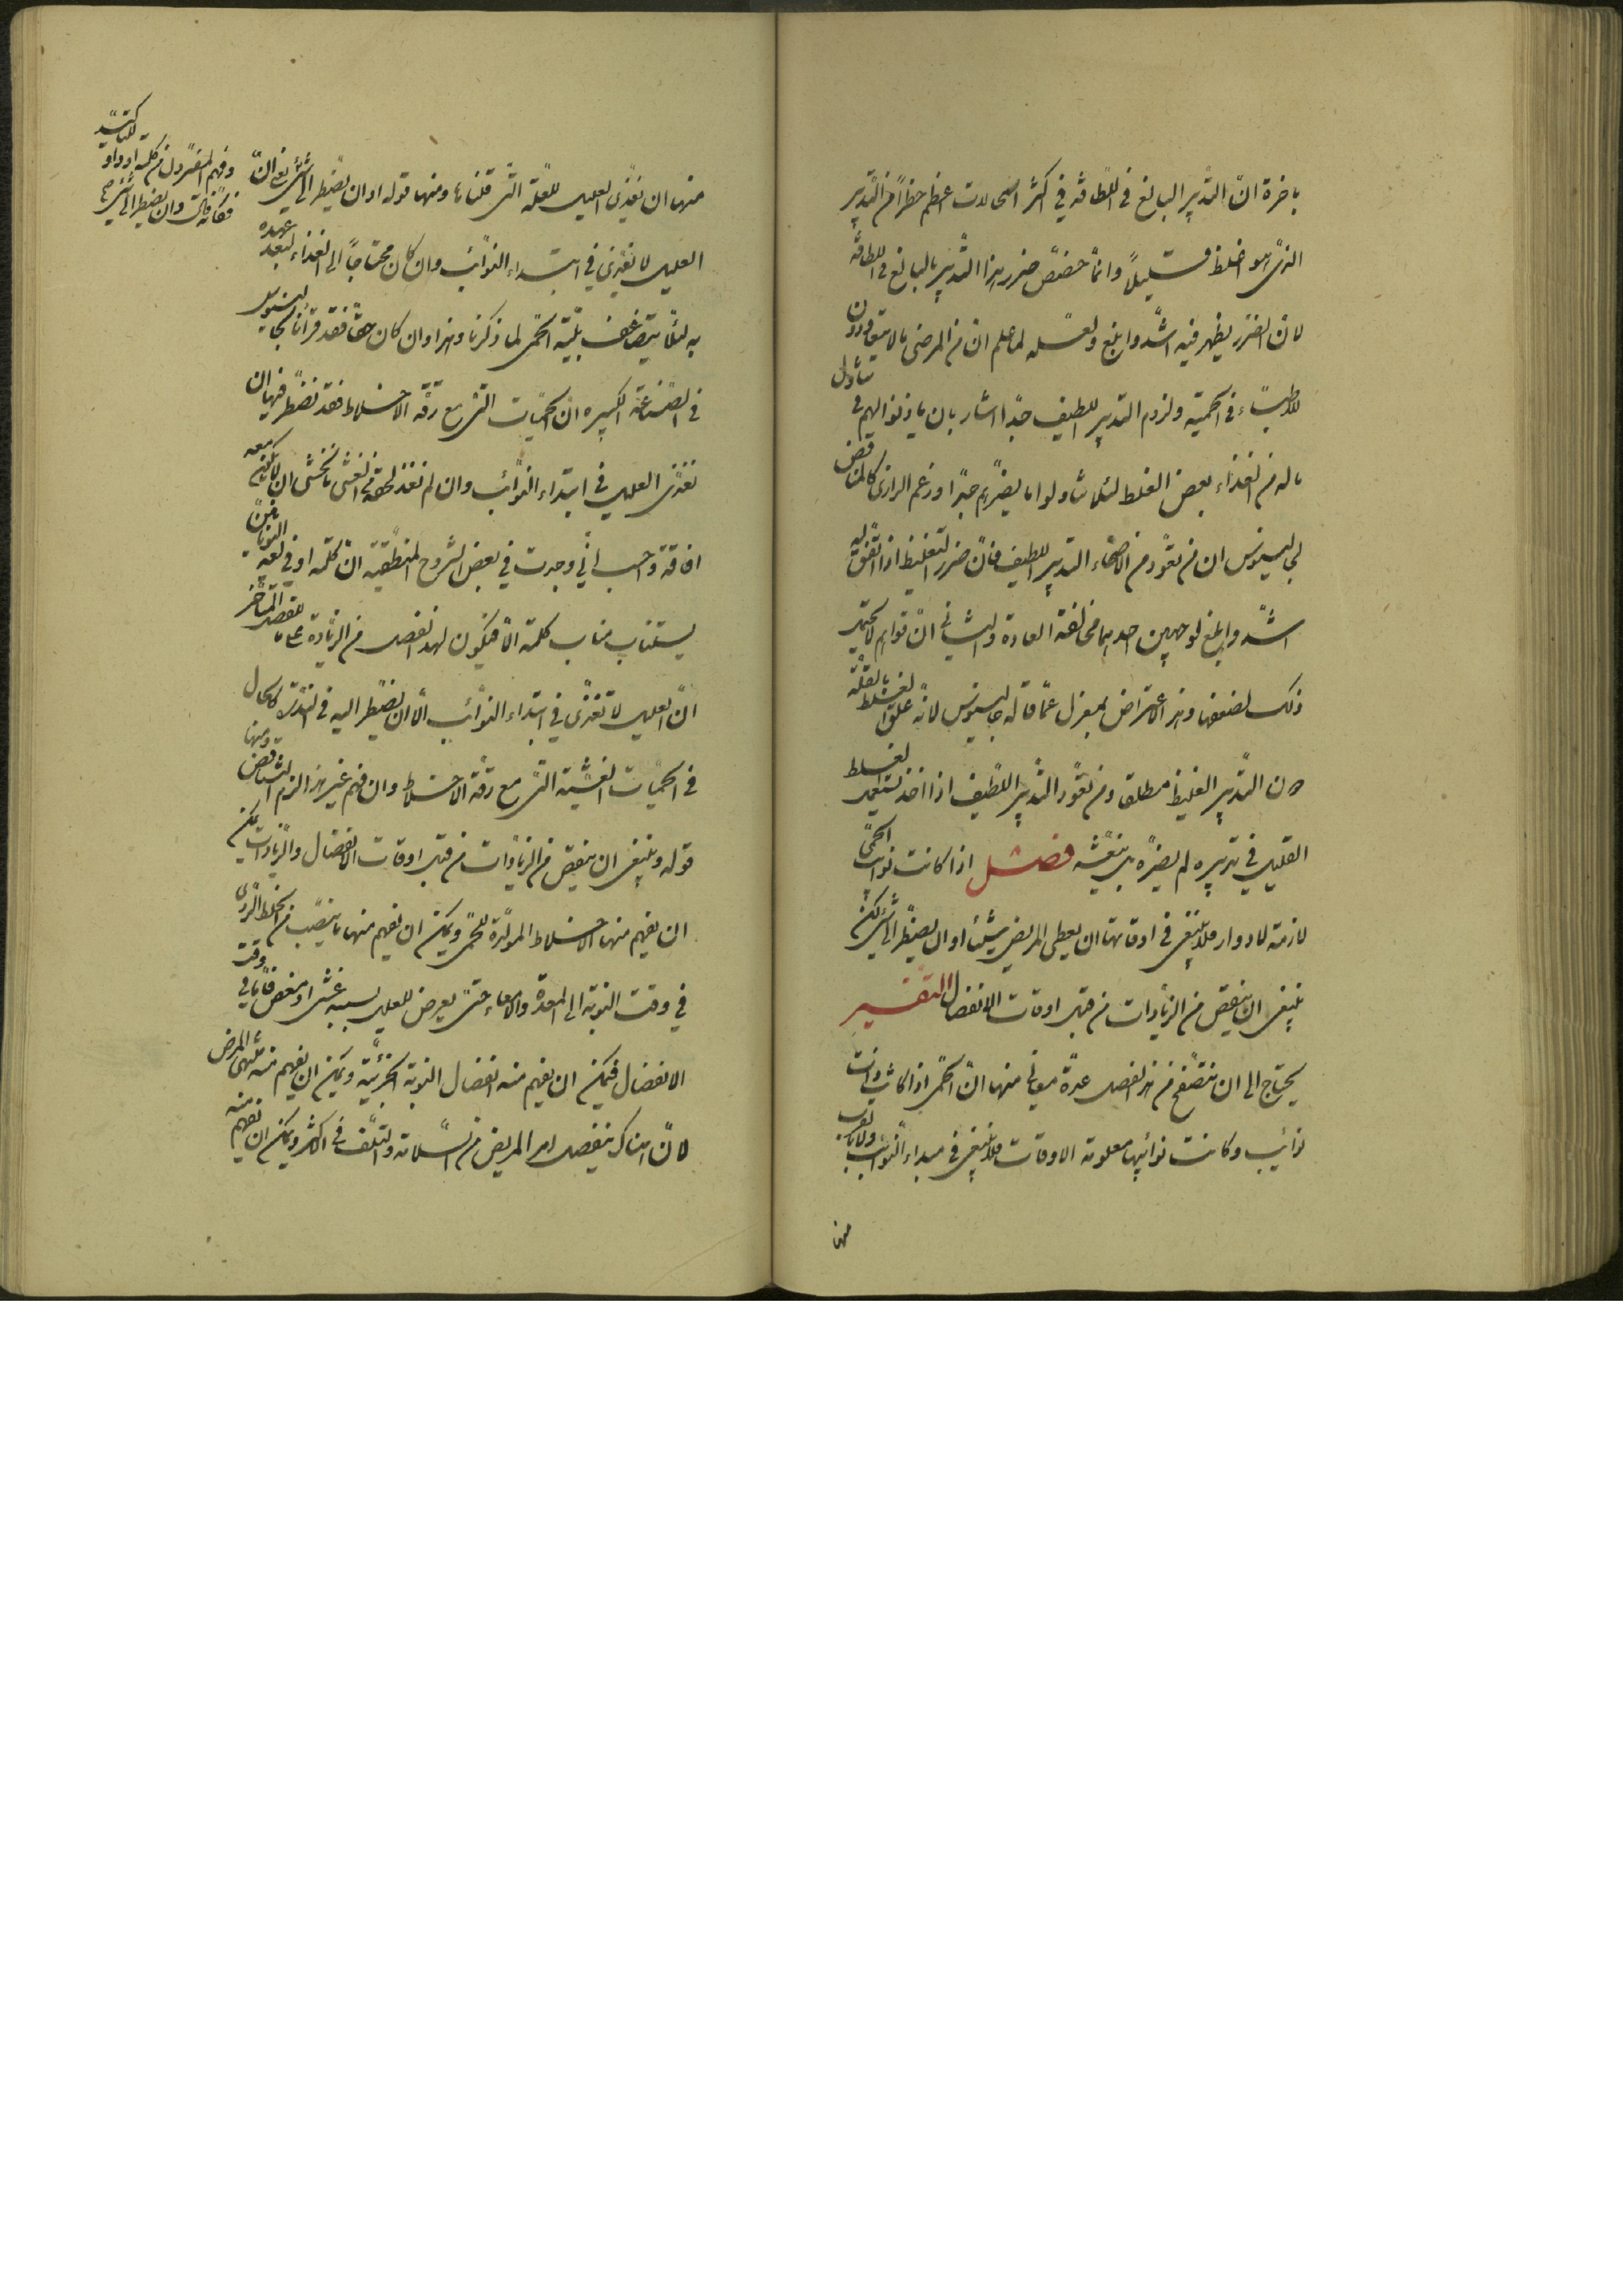 باخرة انّ التدبير البالغ فى اللطافة فى اكثر الحالات اعظم خطرًا من التدبير
الذى هو اغلظ قليلًا وانّما خصّص ضرر هذا التدبير بالبالغ فى اللطافة
لانّ الضرر يظهر فيه اشدّ وابلغ ولعله لما علم ان من المرضى ما لا ينقادون
للاطبّاء فى الحمية ولزوم التدبير اللطيف جدًّا اشار بان ياذنوا لهم فى تناول
ما له من الغذاء بعض الغلظ لئلا يتناولوا ما يضرّهم جدًّا وزعم الرازى كالمناقض
لجالينوس ان من تعوّد من الاصحّاء التدبير اللطيف فانّ ضرر التغليظ اذا اتّفق له
اشدّ وابلغ لوجهين احدهما مخالفة العادة والثانى انّ قواهم لا تحتمل
ذلك لضعفها وهذا الاعتراض بمعزل عمّا قاله جالينوس لانّه علّق الغلظ بالقلّة
لان التدبير الغليظ مطلقا ومن تعوّد التدبير اللطيف اذا اخذ يستعمل الغلظ
القليل فى تدبيره لم يضرّه بل ينعشه فصل اذا كانت نوائب الحمّى
لازمة لادوار فلا ينبغى فى اوقاتها ان يعطى المريض شيئًا او ان يضطرّ الى شىء لكن
ينبغى ان ينقص من الزيادات من قبل اوقات الانفصال التفسير
يحتاج الى ان نتصفّح من هذا الفصل عدّة معانى منها انّ الحمّى اذا كانت ذات
نوائب وكانت نوائبها معلومة الاوقات فلا ينبغى فى مبداء النوائب
منها
منها ان يغذّى العليل للعلّة التى قلناها ومنها قوله او ان يضطر الى شىء يعنى انّ
العليل لا يغذّى فى ابتداء النوائب وان كان محتاجًا الى الغذاء لبعد عهده
به لئلّا يتضاعف بليّة الحمّى لما ذكرنا وهذا وان كان حقًّا فقد قرأنا لجالينوس
فى الصناعة الكبيرة انّ الحميّات التى مع رقّة الاخلاط فقد نضطر فيها ان
نغذّى العليل فى ابتداء النوائب وان لم نغذ لحقه من الغشى ما نخشى ان لا يكون معه
افاقة واحسب انّى وجدت فى بعض الشروح المنطقية انّ كلمة او فى لغة اليونانيين
يستناب مناب كلمة الّا فيكون لهذا الفصل من الزيادة
انّ العليل لا تغذّى فى ابتداء النوائب الّا ان يضطر اليه فى الندرة كالحال
فى الحميّات الغشيّة التى مع رقّة الاخلاط وان فهم غير هذا لزم التناقض ومنها
قوله وينبغى ان ينقص من الزيادات من قبل اوقات الانفصال والزيادات يمكن
ان يفهم منها الاخلاط المولّدة للحمّى ويمكن ان يفهم منها ما ينصبّ من الخلط الردى
فى وقت النوبة الى المعدة والامعاء حتى يعرض للعليل بسببه غشى او مغص فامّا فى وقت
الانفصال فيمكن ان يفهم منه انفصال النوبة الجزئيّة ويمكن ان يفهم منه منتهى المرض
لانّ هناك ينفصل امر المريض من السلامة والتلف فى الاكثر ويمكن ان يفهم منه